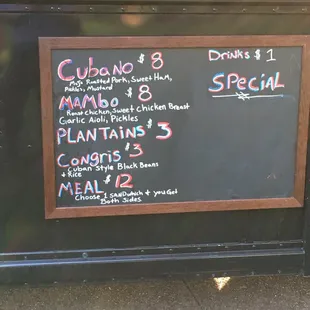 Cubano $8
Mojo Roasted Pork, Sweet Ham,
Pickles, Mustard
Mambo $8
Roast Chicken, Sweet Chicken Breast
Garlic Aioli, Pickles
Plantains $3
Congris $3
Cuban Style Black Beans
+ Rice
Meal $12
Choose 1 Sandwich + you Get
Both Sides
Drinks $1
Special